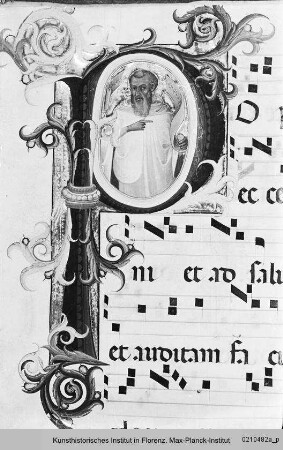 P O
ec co
ni et ad salu
et auditam fa cu
Kunsthistorisches Institut in Florenz. Max-Planck-Institut 0210482a_p